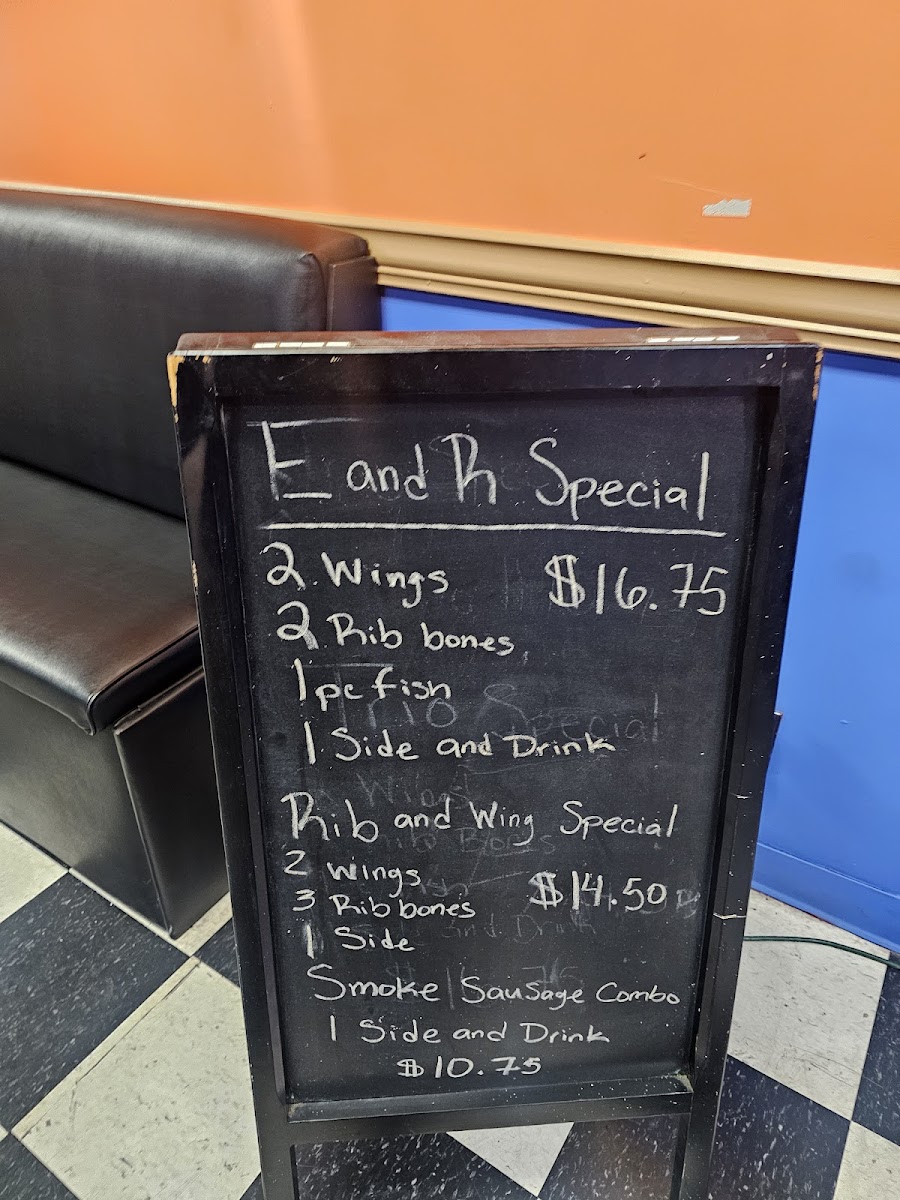 E and R Special
2 Wings $16.75
2 Rib bones
1 pc fish
1 Side and Drink
Trio Special
Rib and Wing Special
2 Wings
3 Rib bones $14.50
1 Side
Smoke Sausage Combo
1 Side and Drink
$10.75